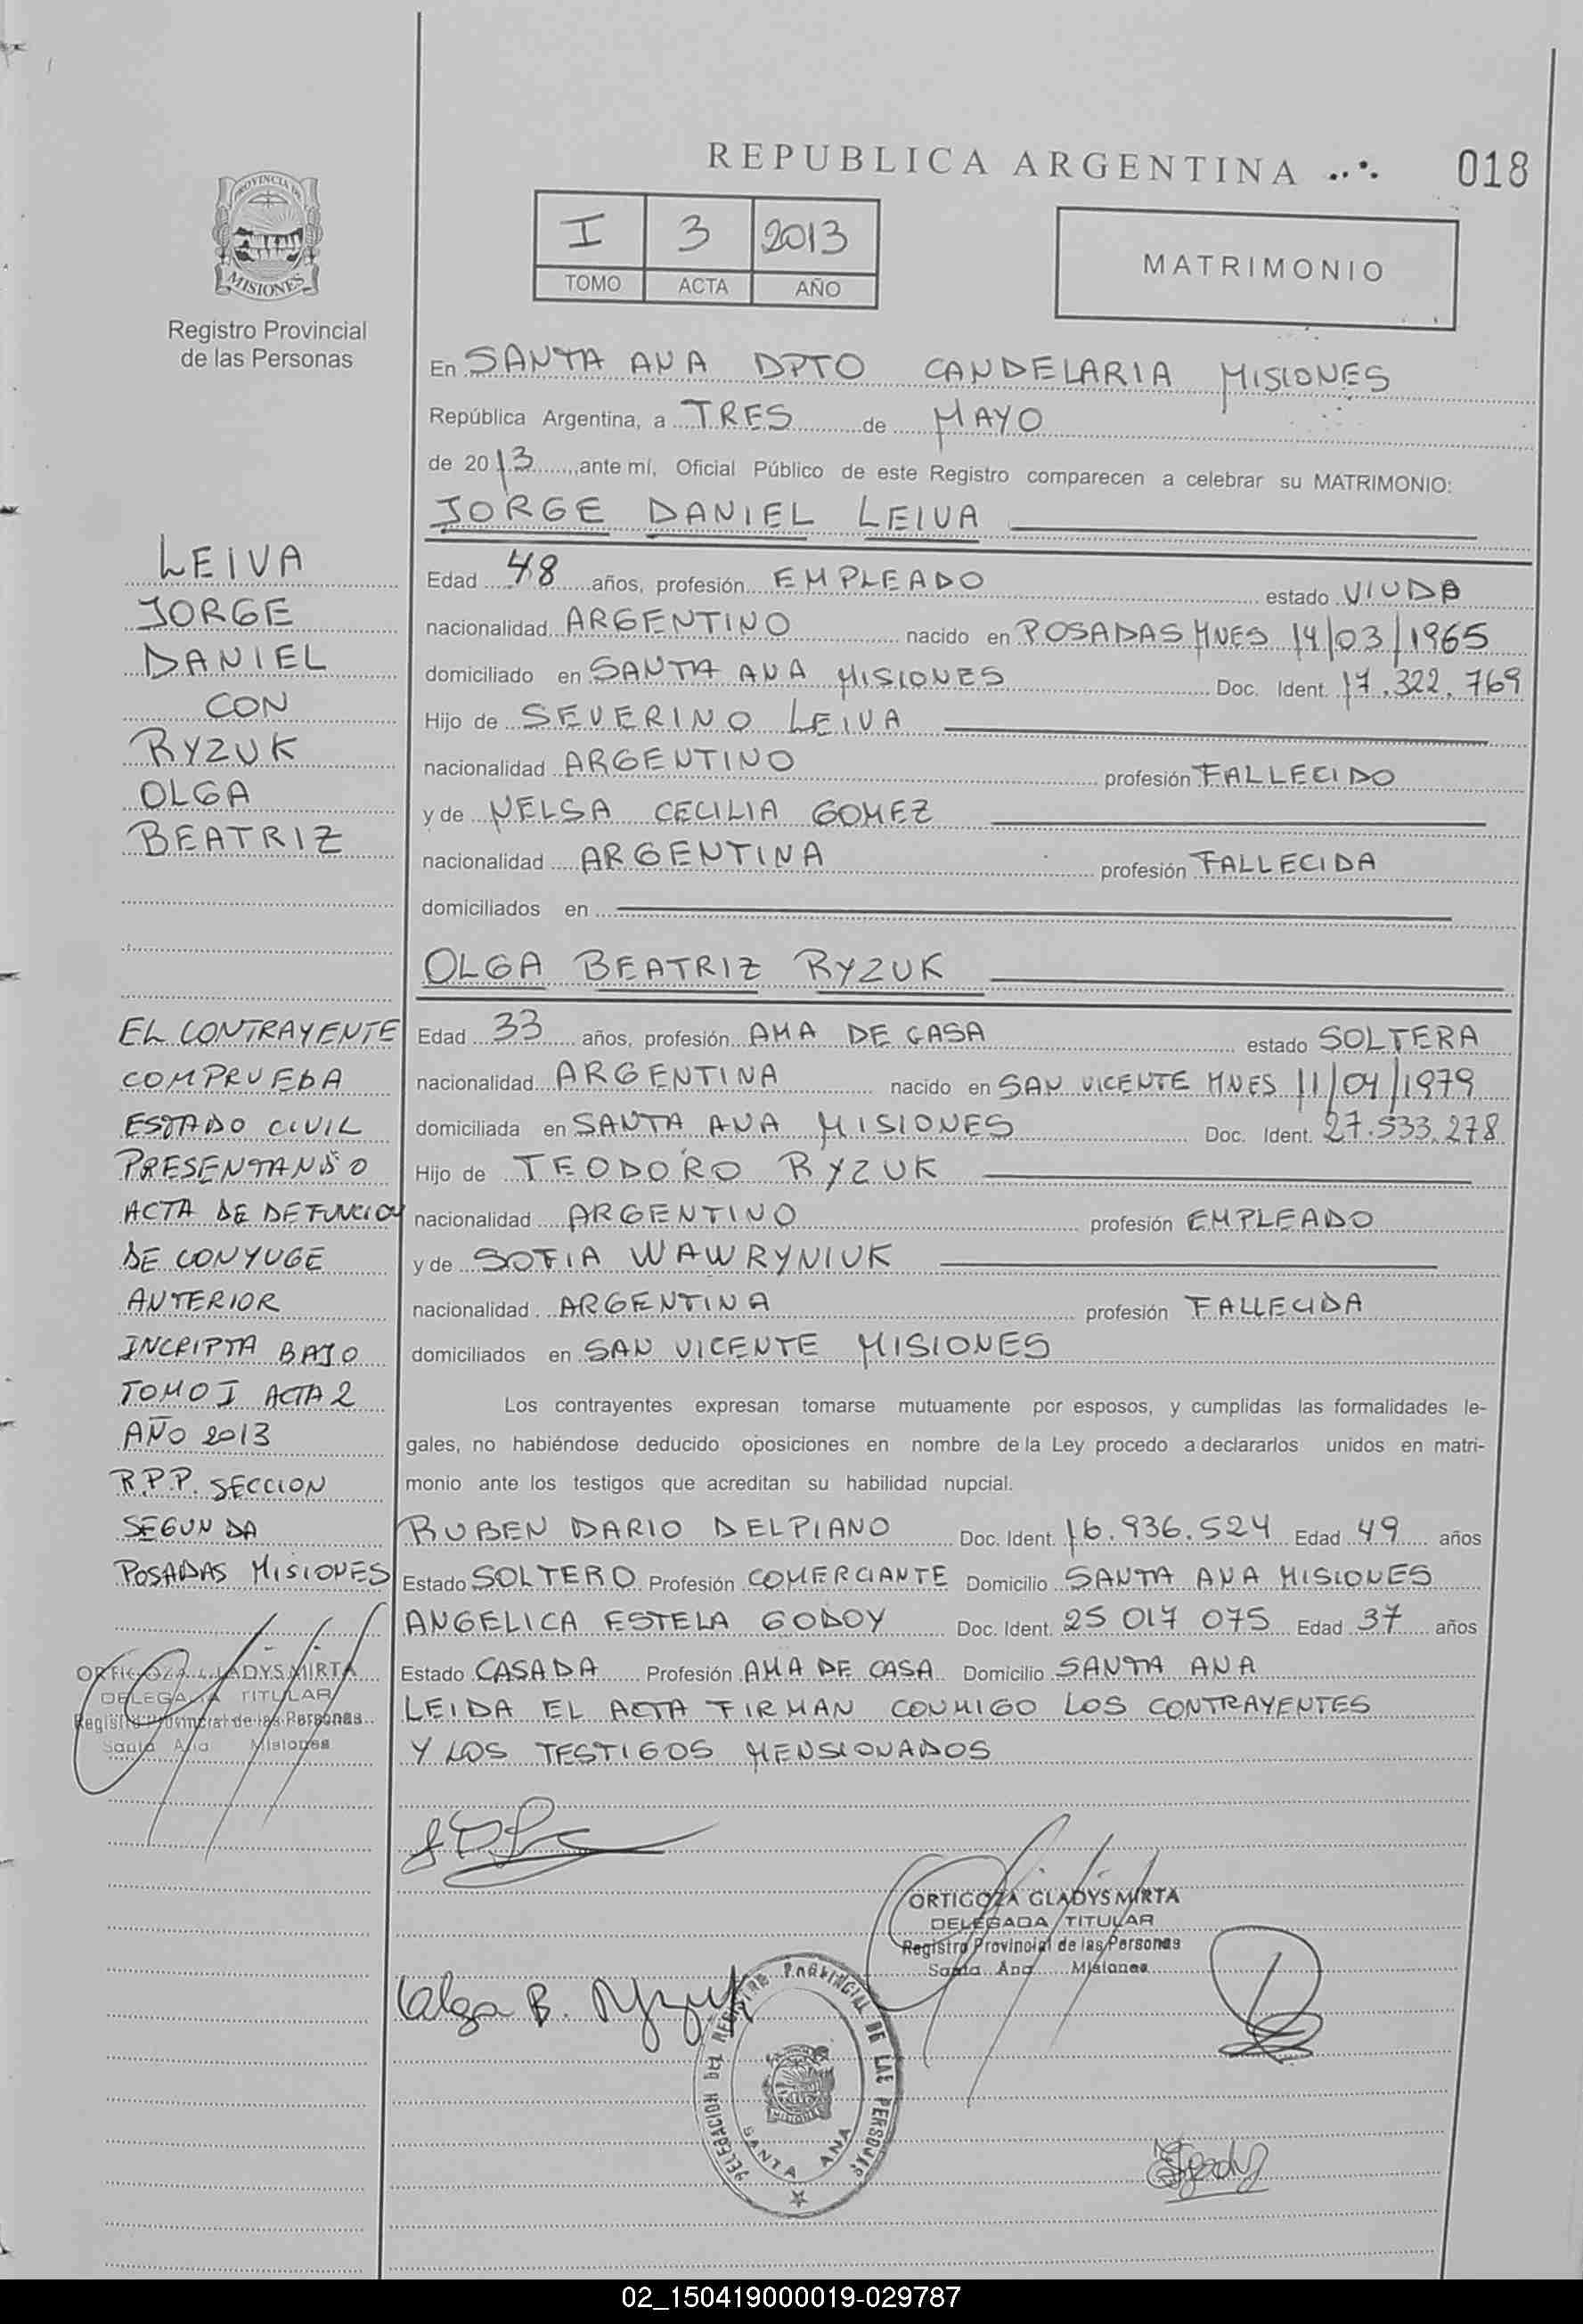 REPUBLICA ARGENTINA
018
PROVINCIA DE
MISIONES
Registro Provincial
de las Personas
I 3 2013
TOMO ACTA AÑO
MATRIMONIO
En SANTA ANA DPTO CANDELARIA MISIONES
República Argentina, a TRES de MAYO
de 2013, ante mí, Oficial Público de este Registro comparecen a celebrar su MATRIMONIO:
JORGE DANIEL LEIVA
Edad 48 años, profesión EMPLEADO estado VIUDO
nacionalidad ARGENTINO nacido en POSADAS MNES 14/03/1965
domiciliado en SANTA ANA MISIONES Doc. Ident. 17.322.769
Hijo de SEVERINO LEIVA
nacionalidad ARGENTINO profesión FALLECIDO
y de NELSA CECILIA GOMEZ
nacionalidad ARGENTINA profesión FALLECIDA
domiciliados en
OLGA BEATRIZ RYZUK
Edad 33 años, profesión AMA DE CASA estado SOLTERA
nacionalidad ARGENTINA nacido en SAN VICENTE MNES 11/04/1979
domiciliada en SANTA ANA MISIONES Doc. Ident. 27.533.278
Hijo de TEODORO RYZUK
nacionalidad ARGENTINO profesión EMPLEADO
y de SOFIA WAWRYNIUK
nacionalidad ARGENTINA profesión FALLECIDA
domiciliados en SAN VICENTE MISIONES
Los contrayentes expresan tomarse mutuamente por esposos, y cumplidas las formalidades le-
gales, no habiéndose deducido oposiciones en nombre de la Ley procedo a declararlos unidos en matri-
monio ante los testigos que acreditan su habilidad nupcial.
RUBEN DARIO DELPIANO Doc. Ident. 16.936.524 Edad 49 años
Estado SOLTERO Profesión COMERCIANTE Domicilio SANTA ANA MISIONES
ANGELICA ESTELA GODOY Doc. Ident. 25 017 075 Edad 37 años
Estado CASADA Profesión AMA DE CASA Domicilio SANTA ANA
LEIDA EL ACTA FIRMAN CONMIGO LOS CONTRAYENTES
Y LOS TESTIGOS MENSIONADOS
LEIVA
JORGE
DANIEL
CON
RYZUK
OLGA
BEATRIZ
EL CONTRAYENTE
COMPRUEBA
ESTADO CIVIL
PRESENTANDO
ACTA DE DEFUNCION
DE CONYUGE
ANTERIOR
INCRIPTA BAJO
TOMO I ACTA 2
AÑO 2013
R.P.P. SECCION
SEGUNDA
POSADAS MISIONES
ORTIGOZA GLADYS MIRTA
DELEGADA TITULAR
Registro Provincial de las Personas
Santa Ana Misiones
ORTIGOZA GLADYS MIRTA
DELEGADA TITULAR
Registro Provincial de las Personas
Santa Ana Misiones
Olga B. Ryzuk
DELEGACION DEL REGISTRO PROVINCIAL DE LAS PERSONAS
MISIONES
SANTA ANA
02_150419000019-029787